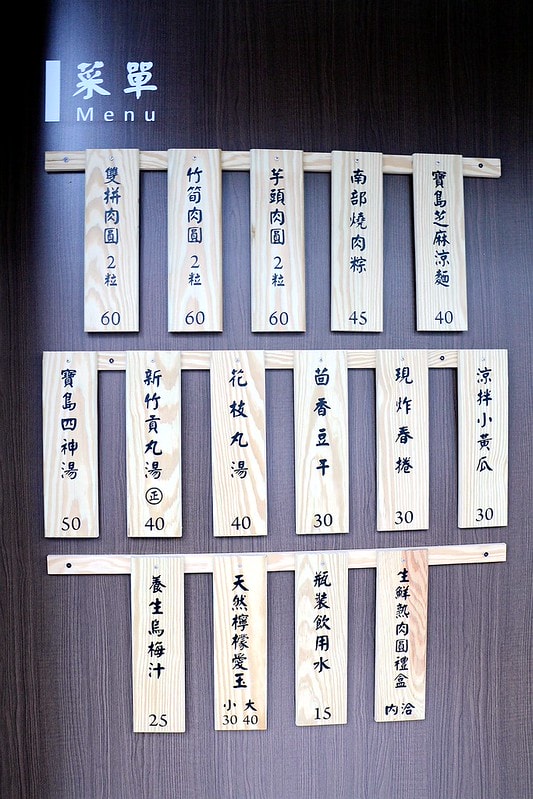 菜單
Menu
雙拼肉圓2粒
60
竹筍肉圓2粒
60
芋頭肉圓2粒
60
南部燒肉粽
45
寶島芝麻涼麵
40
寶島四神湯
50
新竹貢丸湯㊣
40
花枝丸湯
40
茴香豆干
30
現炸春捲
30
涼拌小黃瓜
30
養生烏梅汁
25
天然檸檬愛玉
小 大
30 40
瓶裝飲用水
15
生鮮熟肉圓禮盒
內洽